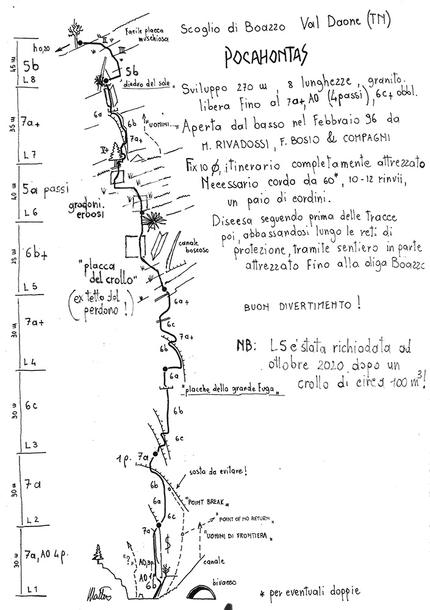 Scoglio di Boazzo Val Daone (TN)
POCAHONTAS
Sviluppo 270 m, 8 lunghezze, granito.
libera fino al 7a+, A0 (4 passi), 6c+ obbl.
Aperta dal basso nel Febbraio 96 da
M. RIVADOSSI, F. BOSIO & COMPAGNI
Fix 10 Ø, itinerario completamente attrezzato
Necessario corda da 60*, 10-12 rinvii,
un paio di cordini.
Discesa seguendo prima delle tracce
poi, abbassandosi lungo le reti di
protezione, tramite sentiero in parte
attrezzato fino alla diga Boazzo
BUON DIVERTIMENTO!
NB: L5 è stata richiodata ad
ottobre 2020 dopo un
crollo di circa 100 m³!
* per eventuali doppie
h 0,20
facile placca
muschiosa
III
45 m
5b
L8
5b
diedro del sole
35 m
7a+
L7
6a
6b
7a+
UOMINI...
V+
40 m
5a passi
L6
gradoni
erbosi
canale
boscoso
25 m
6b+
L5
"placca
del crollo"
(ex tetto del
perdono!)
6a+
7a+
L4
6c
7a+
6b
6a
"placche della grande fuga"
30 m
6c
L3
6b
6c
1 p.
7a
30 m
7a
L2
6b
6a
6c
sosta da evitare!
"POINT BREAK"
"POINT OF NO RETURN"
"UOMINI DI FRONTIERA"
30 m
7a, A0 4p.
L1
7a
"?"
A0, 3p.
A0 1p
6b
$
canale
bivacco
Matteo